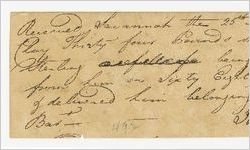 Received Savannah the 25th
Thirty four Pounds
Sterling being
from him on Sixty Eight
of delivered him belonging
Bar